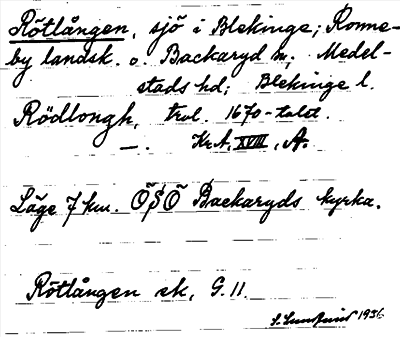 Rötlången, sjö i Blekinge; Ronne-
by landsk. o. Backaryd sn, Medel-
stads hd; Blekinge l.
Rödlongh, trol. 1670-talet.
—. Kr.A. XVIII, A.
Läge 7 km. ÖSÖ Backaryds kyrka.
Rötlången ek, G. 11.
S. 1936